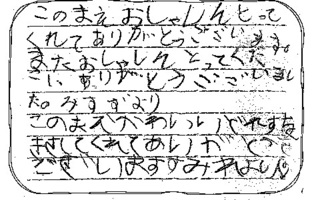 このまえおしゃしんとって
くれてありがとうございます。
またおしゃしんとってくだ
さいありがとうございまし
た。みすずより
このまえかわいい
してくれてありがとう
ござい